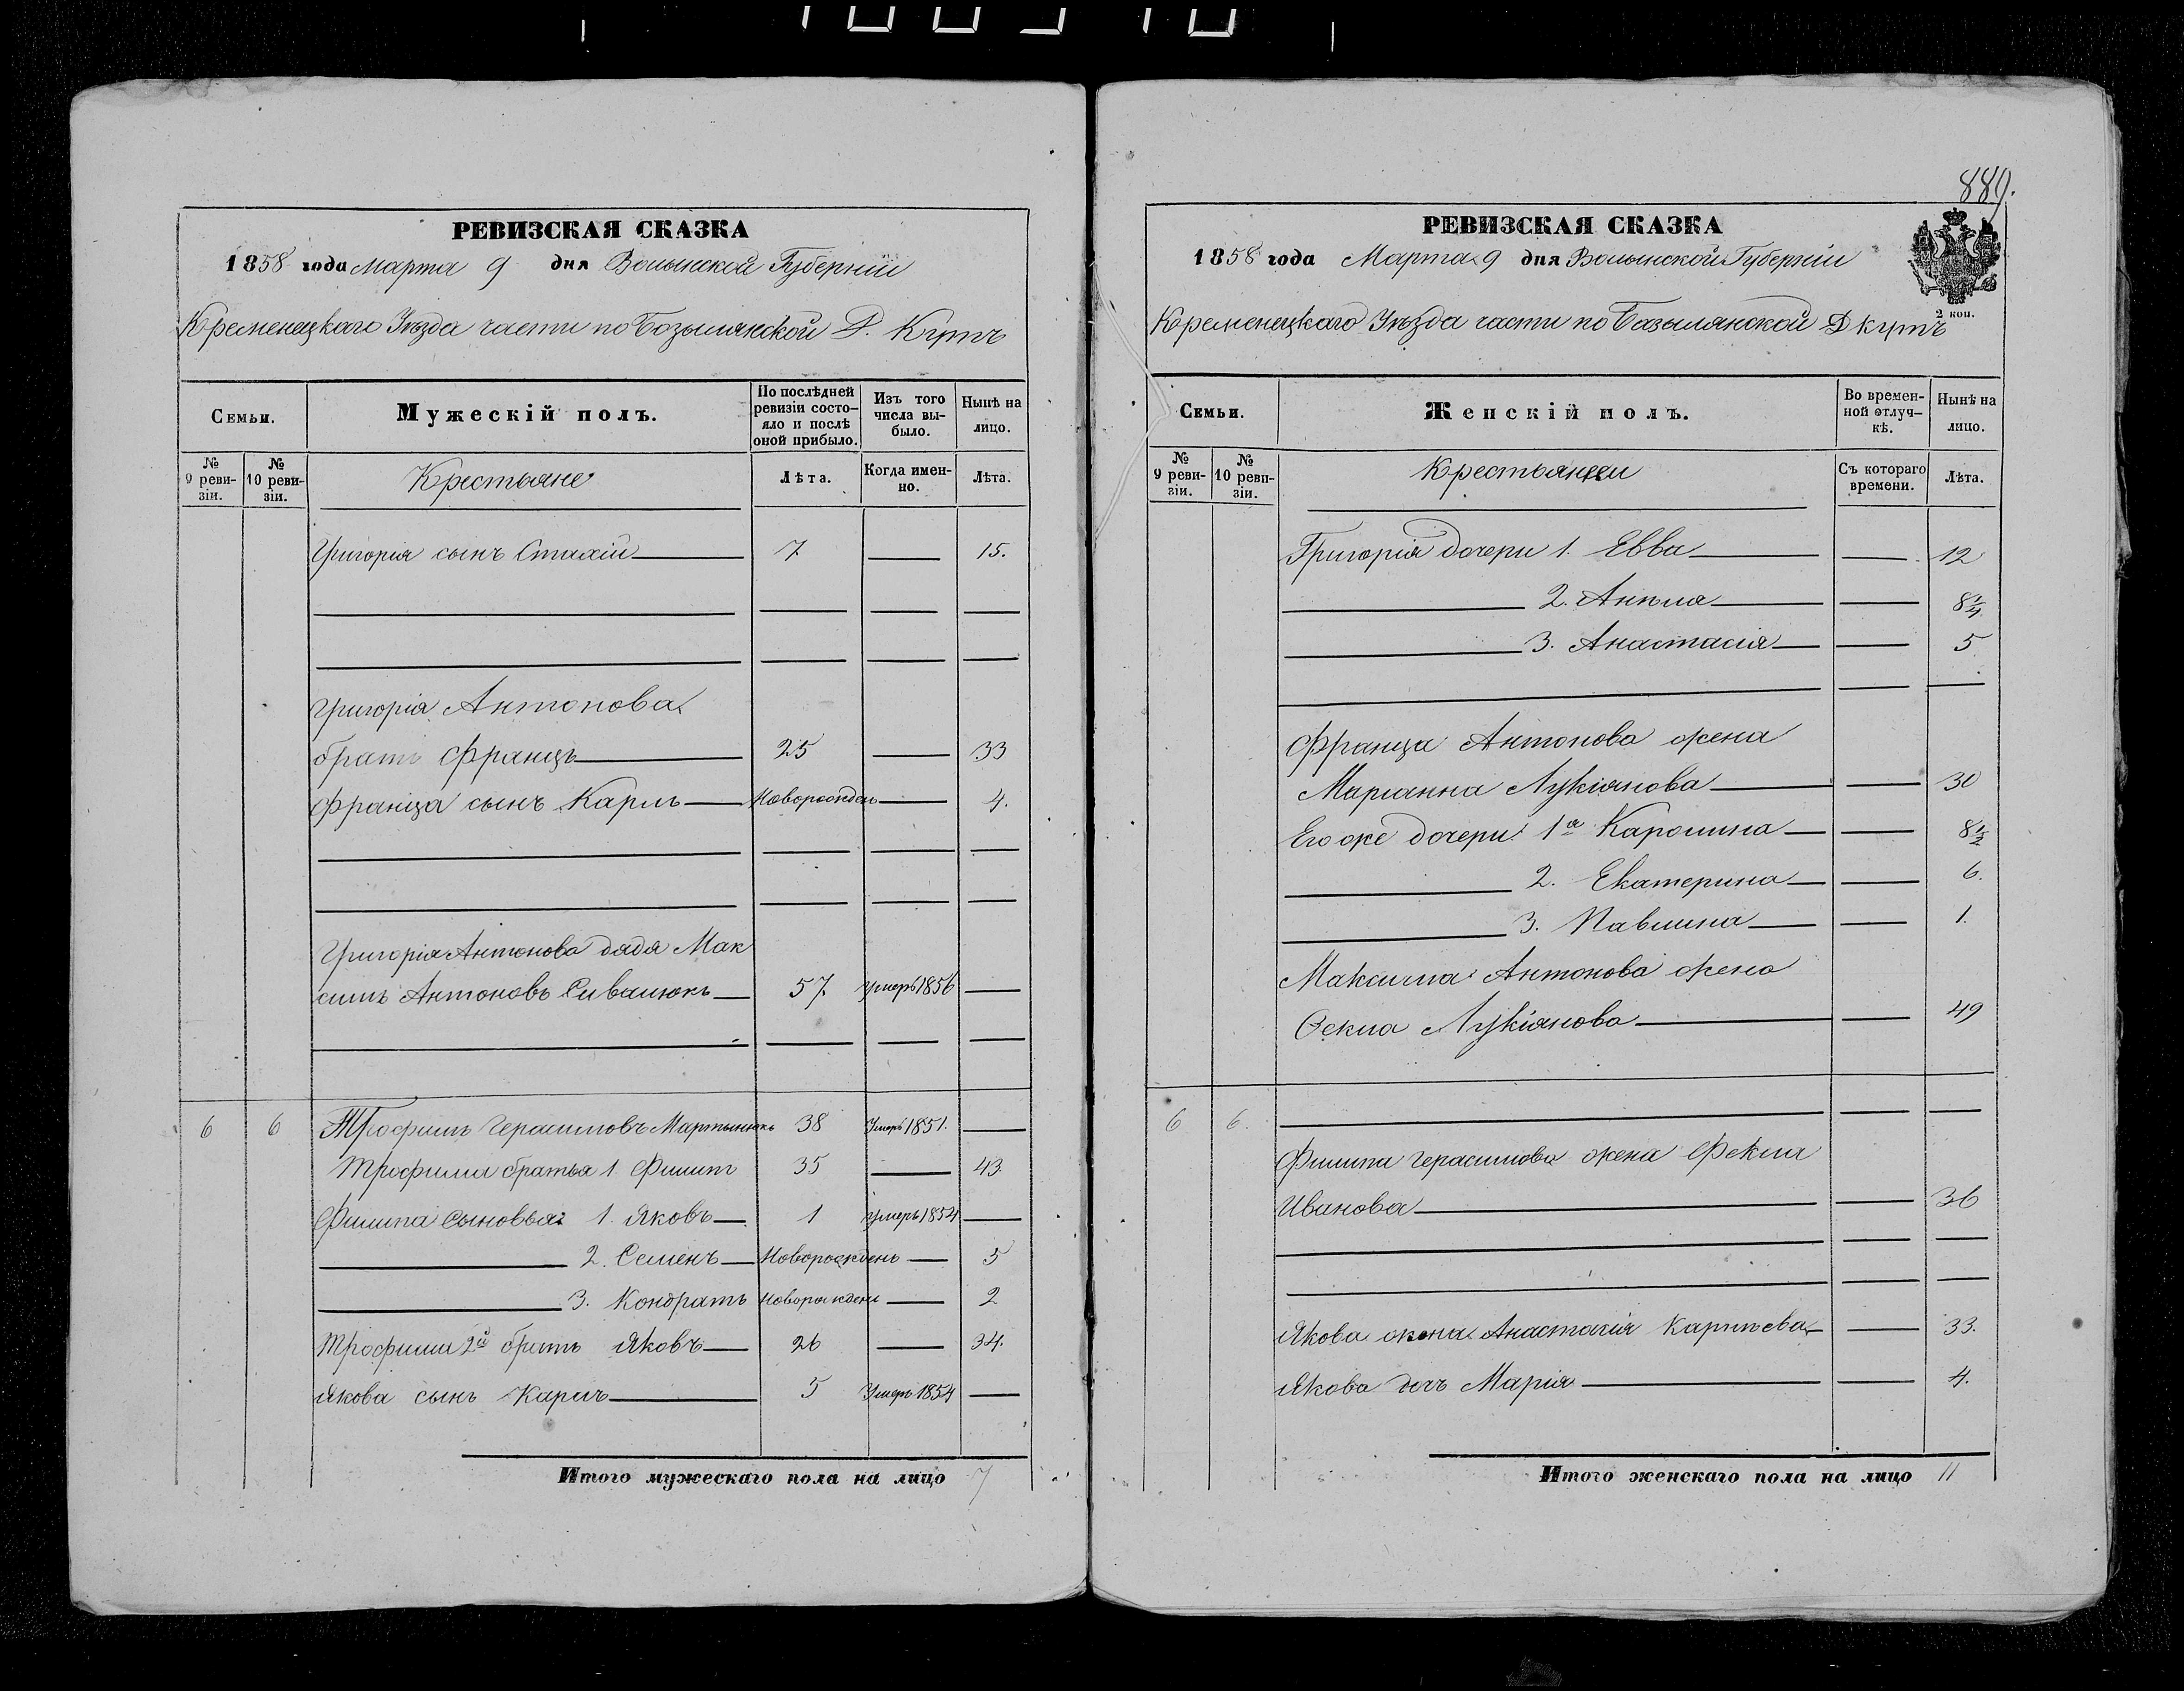 РЕВИЗСКАЯ СКАЗКА
1858 года Марта 9 дня Волынской Губерніи
Кременецкаго Уѣзда части по Базылянской Д. Кутъ
Семьи.
Мужескій полъ.
По послѣдней ревизіи состо-
яло и послѣ
оной прибыло.
Изъ того
числа вы-
было.
Нынѣ на
лицо.
№
9 реви-
зіи.
№
10 реви-
зіи.
Крестьяне
Лѣта.
Когда имен-
но.
Лѣта.
Григорія сынъ Стахій 7 15.
Григорія Антонова
братъ Францъ 25 33
Франца сынъ Карлъ Новорожденъ 4.
Григорія Антонова дядя Мак
симъ Антоновъ Сивалюкъ 57 умеръ 1856
6 6 Трофимъ Герасимовъ Мартынюкъ 38 Умеръ 1851.
Трофима братья 1. Филипъ 35 43
Филипа Сыновья: 1. Яковъ 1 умеръ 1854
2. Семенъ Новорожденъ 5
3. Кондратъ Новорожденъ 2
Трофима 2й братъ Яковъ 26 34.
Якова сынъ Карпъ 5 Умеръ 1854
Итого мужескаго пола на лицо 7
889.
РЕВИЗСКАЯ СКАЗКА
1858 года Марта 9 дня Волынской Губерніи
2 коп.
Кременецкаго Уѣзда части по Базылянской Д Кутъ
Семьи.
Женскій полъ.
Во времен-
ной отлуч-
кѣ.
Нынѣ на
лицо.
№
9 реви-
зіи.
№
10 реви-
зіи.
Крестьянки
Съ котораго
времени.
Лѣта.
Григорія дочери 1. Евва 12
2. Анѣла 8¼
3. Анастасія 5
Франца Антонова жена
Маріанна Лукіянова 30
Его же дочери: 1я Каролина 8½
2. Екатерина 6.
3. Павлина 1.
Максима Антонова жена
Ѳекла Лукіянова 49
6 6.
Филипа Герасимова жена Фекла
Иванова 36
Якова жена Анастасія Карпѣева 33.
Якова дочъ Марія 4.
Итого женскаго пола на лицо 11